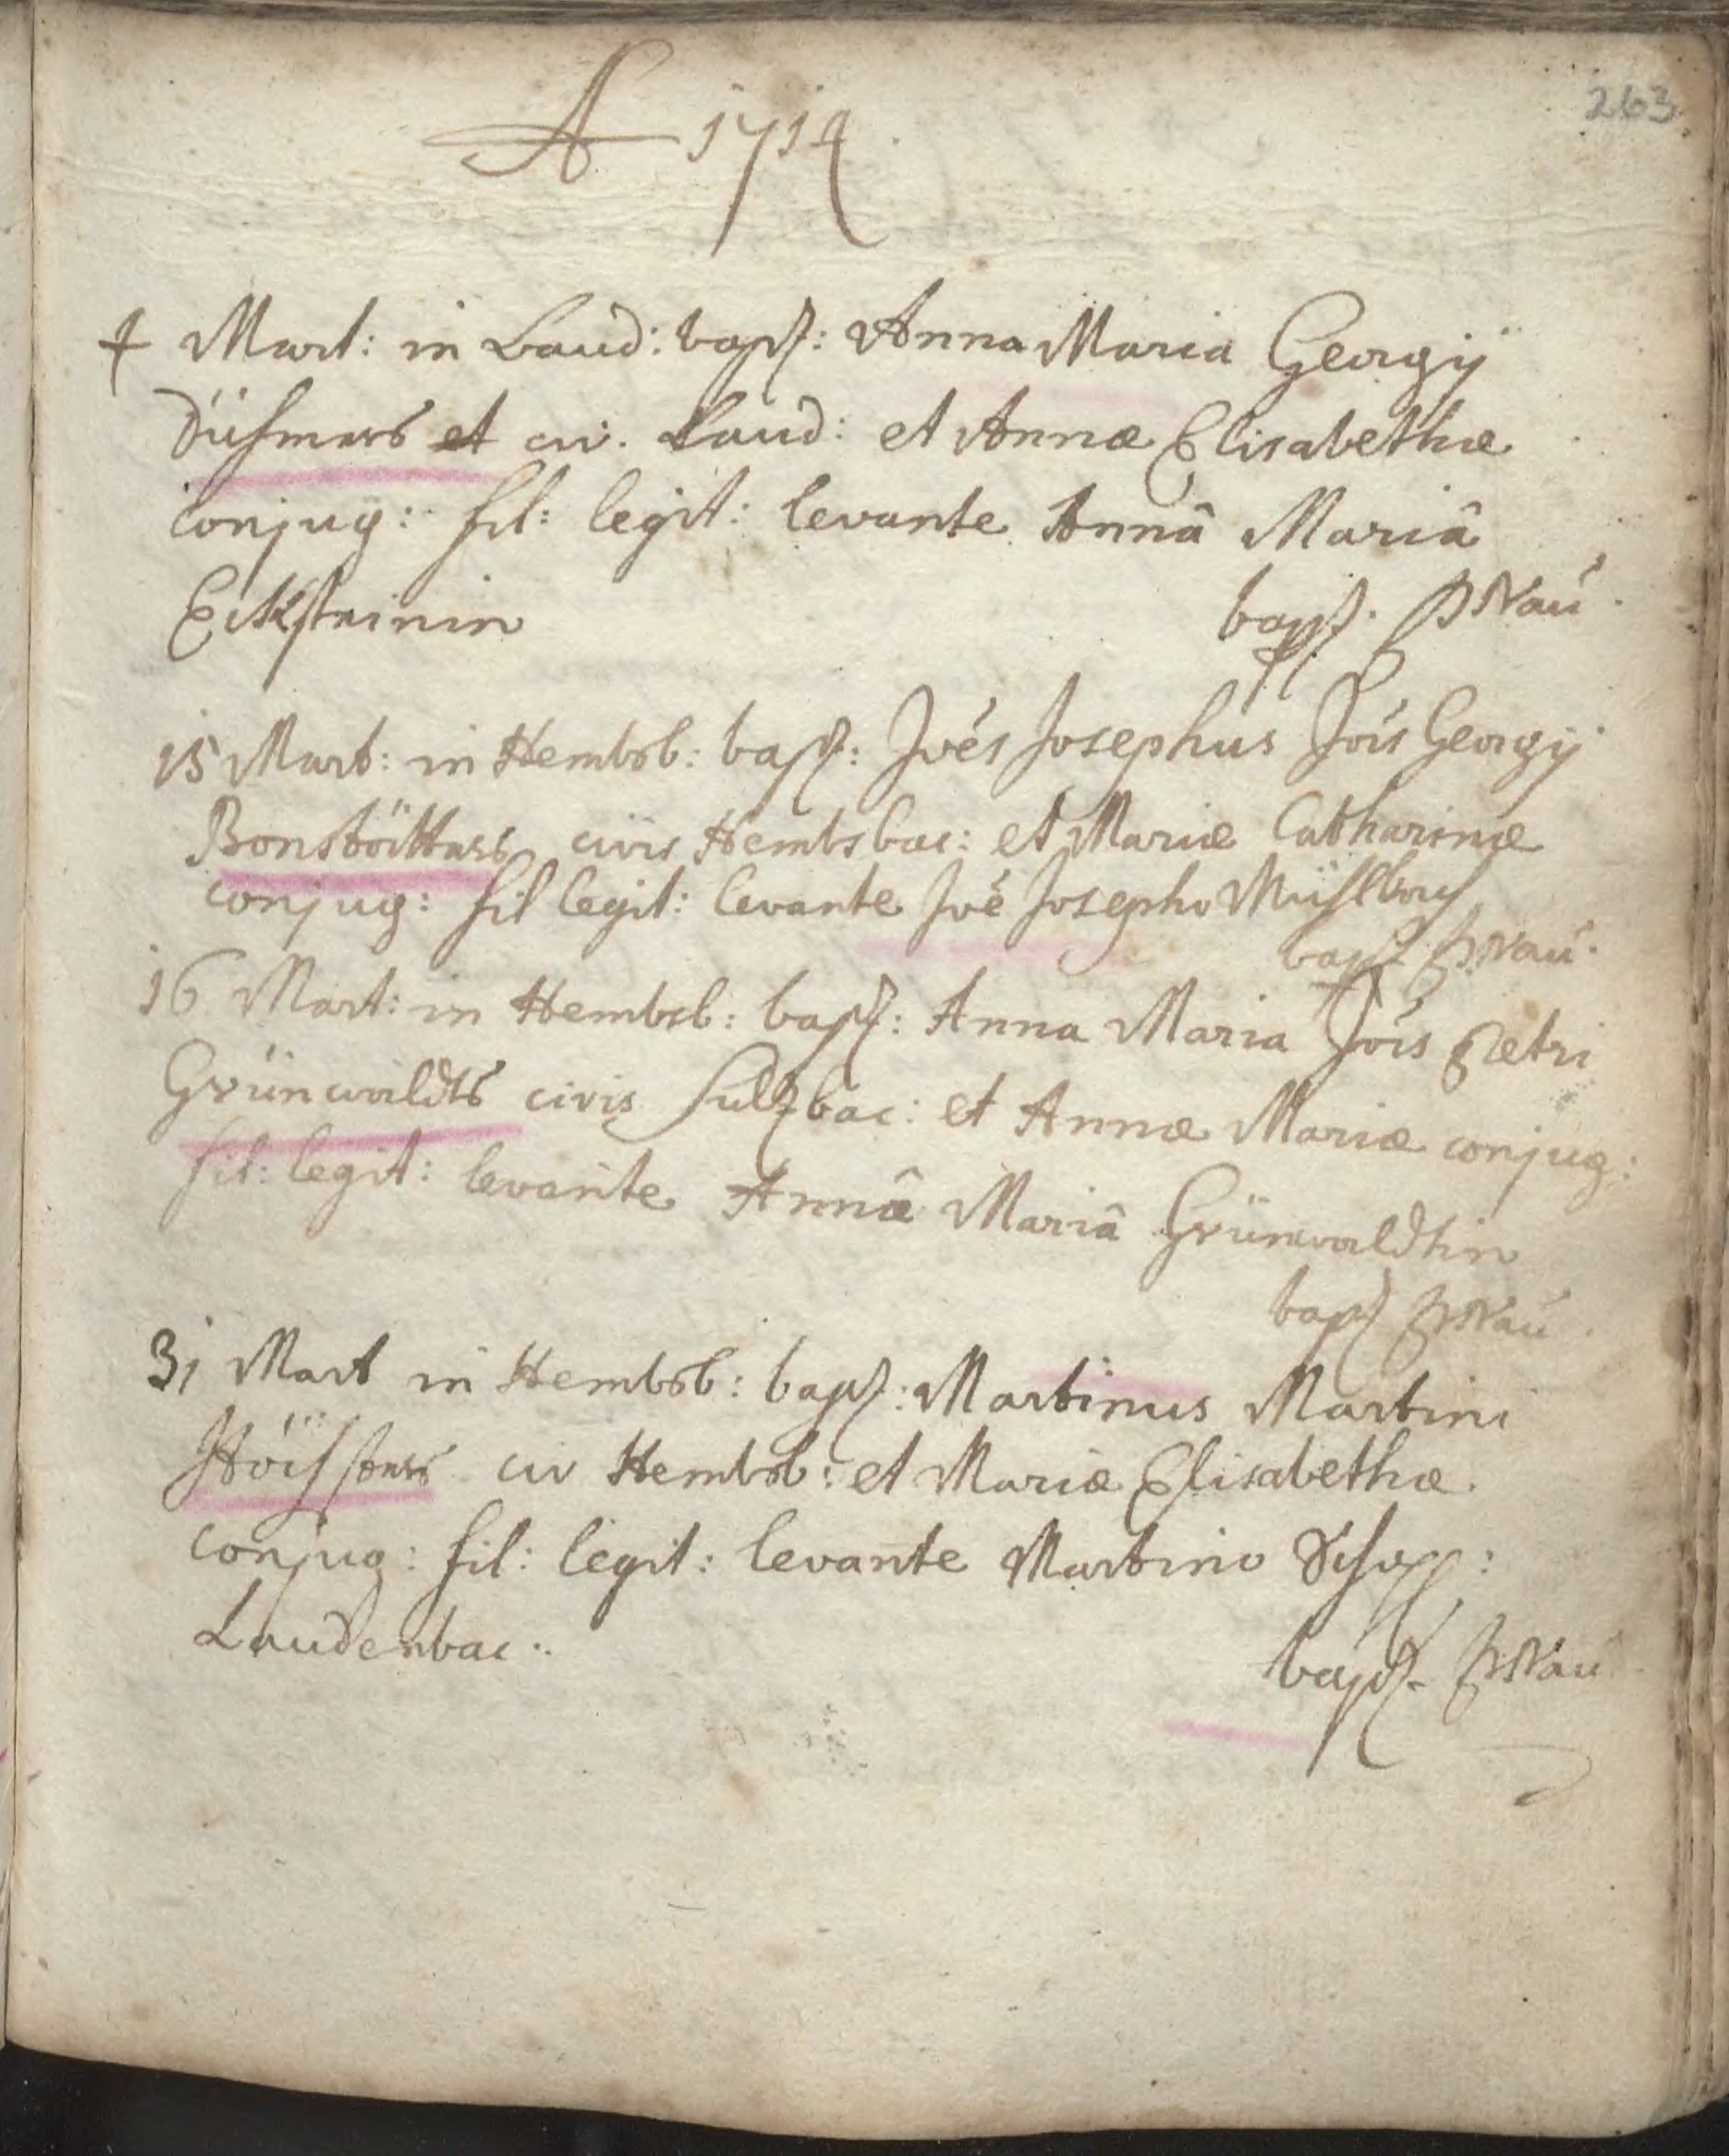 263
A 1714
4 Mart: in Laud: bapt: Anna Maria Georgij
et civ. Laud: et Annæ Elisabethæ
conjug: fil: legit: levante Annâ Mariâ
Ecksteinin bapt. Nau
15 Mart: in Hembsb: bapt: Joés Josephus Jois Georgij
civis Hembsbac: et Mariæ Catharinæ
conjug: fil legit: levante Joé Josepho
bapt. Nau.
16 Mart: in Hembsb: bapt: Anna Maria Jois Petri
Grünwaldts civis Sulzbac: et Annæ Mariæ conjug:
fil: legit: levante Annâ Mariâ Grünwaldtin
bapt Nau.
31 Mart in Hembsb: bapt: Martinus Martini
civ Hembsb: et Mariæ Elisabethæ
conjug: fil: legit: levante Martino
Laudenbac: bapt. Nau